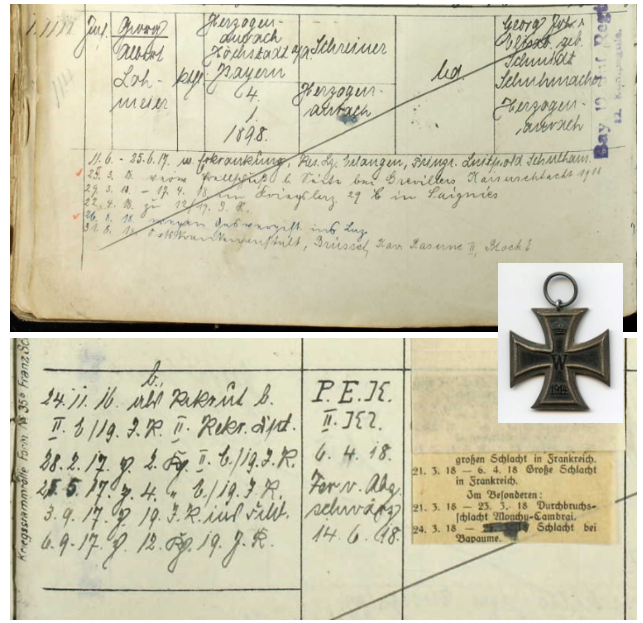 1.11.17
Inf.
Georg
Albert
Loh-
meier
klg.
Herzogen-
aurach
Höchstadt a/A.
Bayern
4.
1.
1898.
Schreiner
Herzogen-
aurach
led.
Georg Joh. u.
geb.
Schmidt
Schuhmacher
Herzogen-
aurach
Bay 19 Inf Regt
12. Kompagnie.
11.6. - 25.6.17. w. Erkrankung, Res. Lz. Erlangen, Prinzr. Luitpold Schulhaus.
b. Seite bei Grevillers Kaiserschlacht 1918
29.3.18. - 17.4.18 im Kriegslaz. 29 C in Laignies
22.4.18 zu 12/19. I. R.
26.8.18. wegen Gasvergift. ins Laz.
31.8.18. Krankenanstalt, Brüssel, Kav. Kaserne II, Block I
Kriegsstammrolle Form. Nr. 350 Franz
24.11.16 als Rekrut b.
II. E./19. I. R. II. Rekr. Dpt.
28.2.17. z. 2. Kp. II. E./19. I. R.
25.5.17. z. 4. " E./19. I. R.
3.9.17. z. 19. I. R. ins Feld.
6.9.17. z. 12. Kp. 19. I. R.
P. E. K.
II. Kl.
6. 4. 18.
Ver. v. Abz.
schwarz
14. 6. 18.
großen Schlacht in Frankreich.
21. 3. 18 — 6. 4. 18 Große Schlacht
in Frankreich.
Im Besonderen:
21. 3. 18 — 23. 3. 18 Durchbruchs-
schlacht Monchy-Cambrai.
24. 3. 18 — Schlacht bei
Bapaume.
W
1914